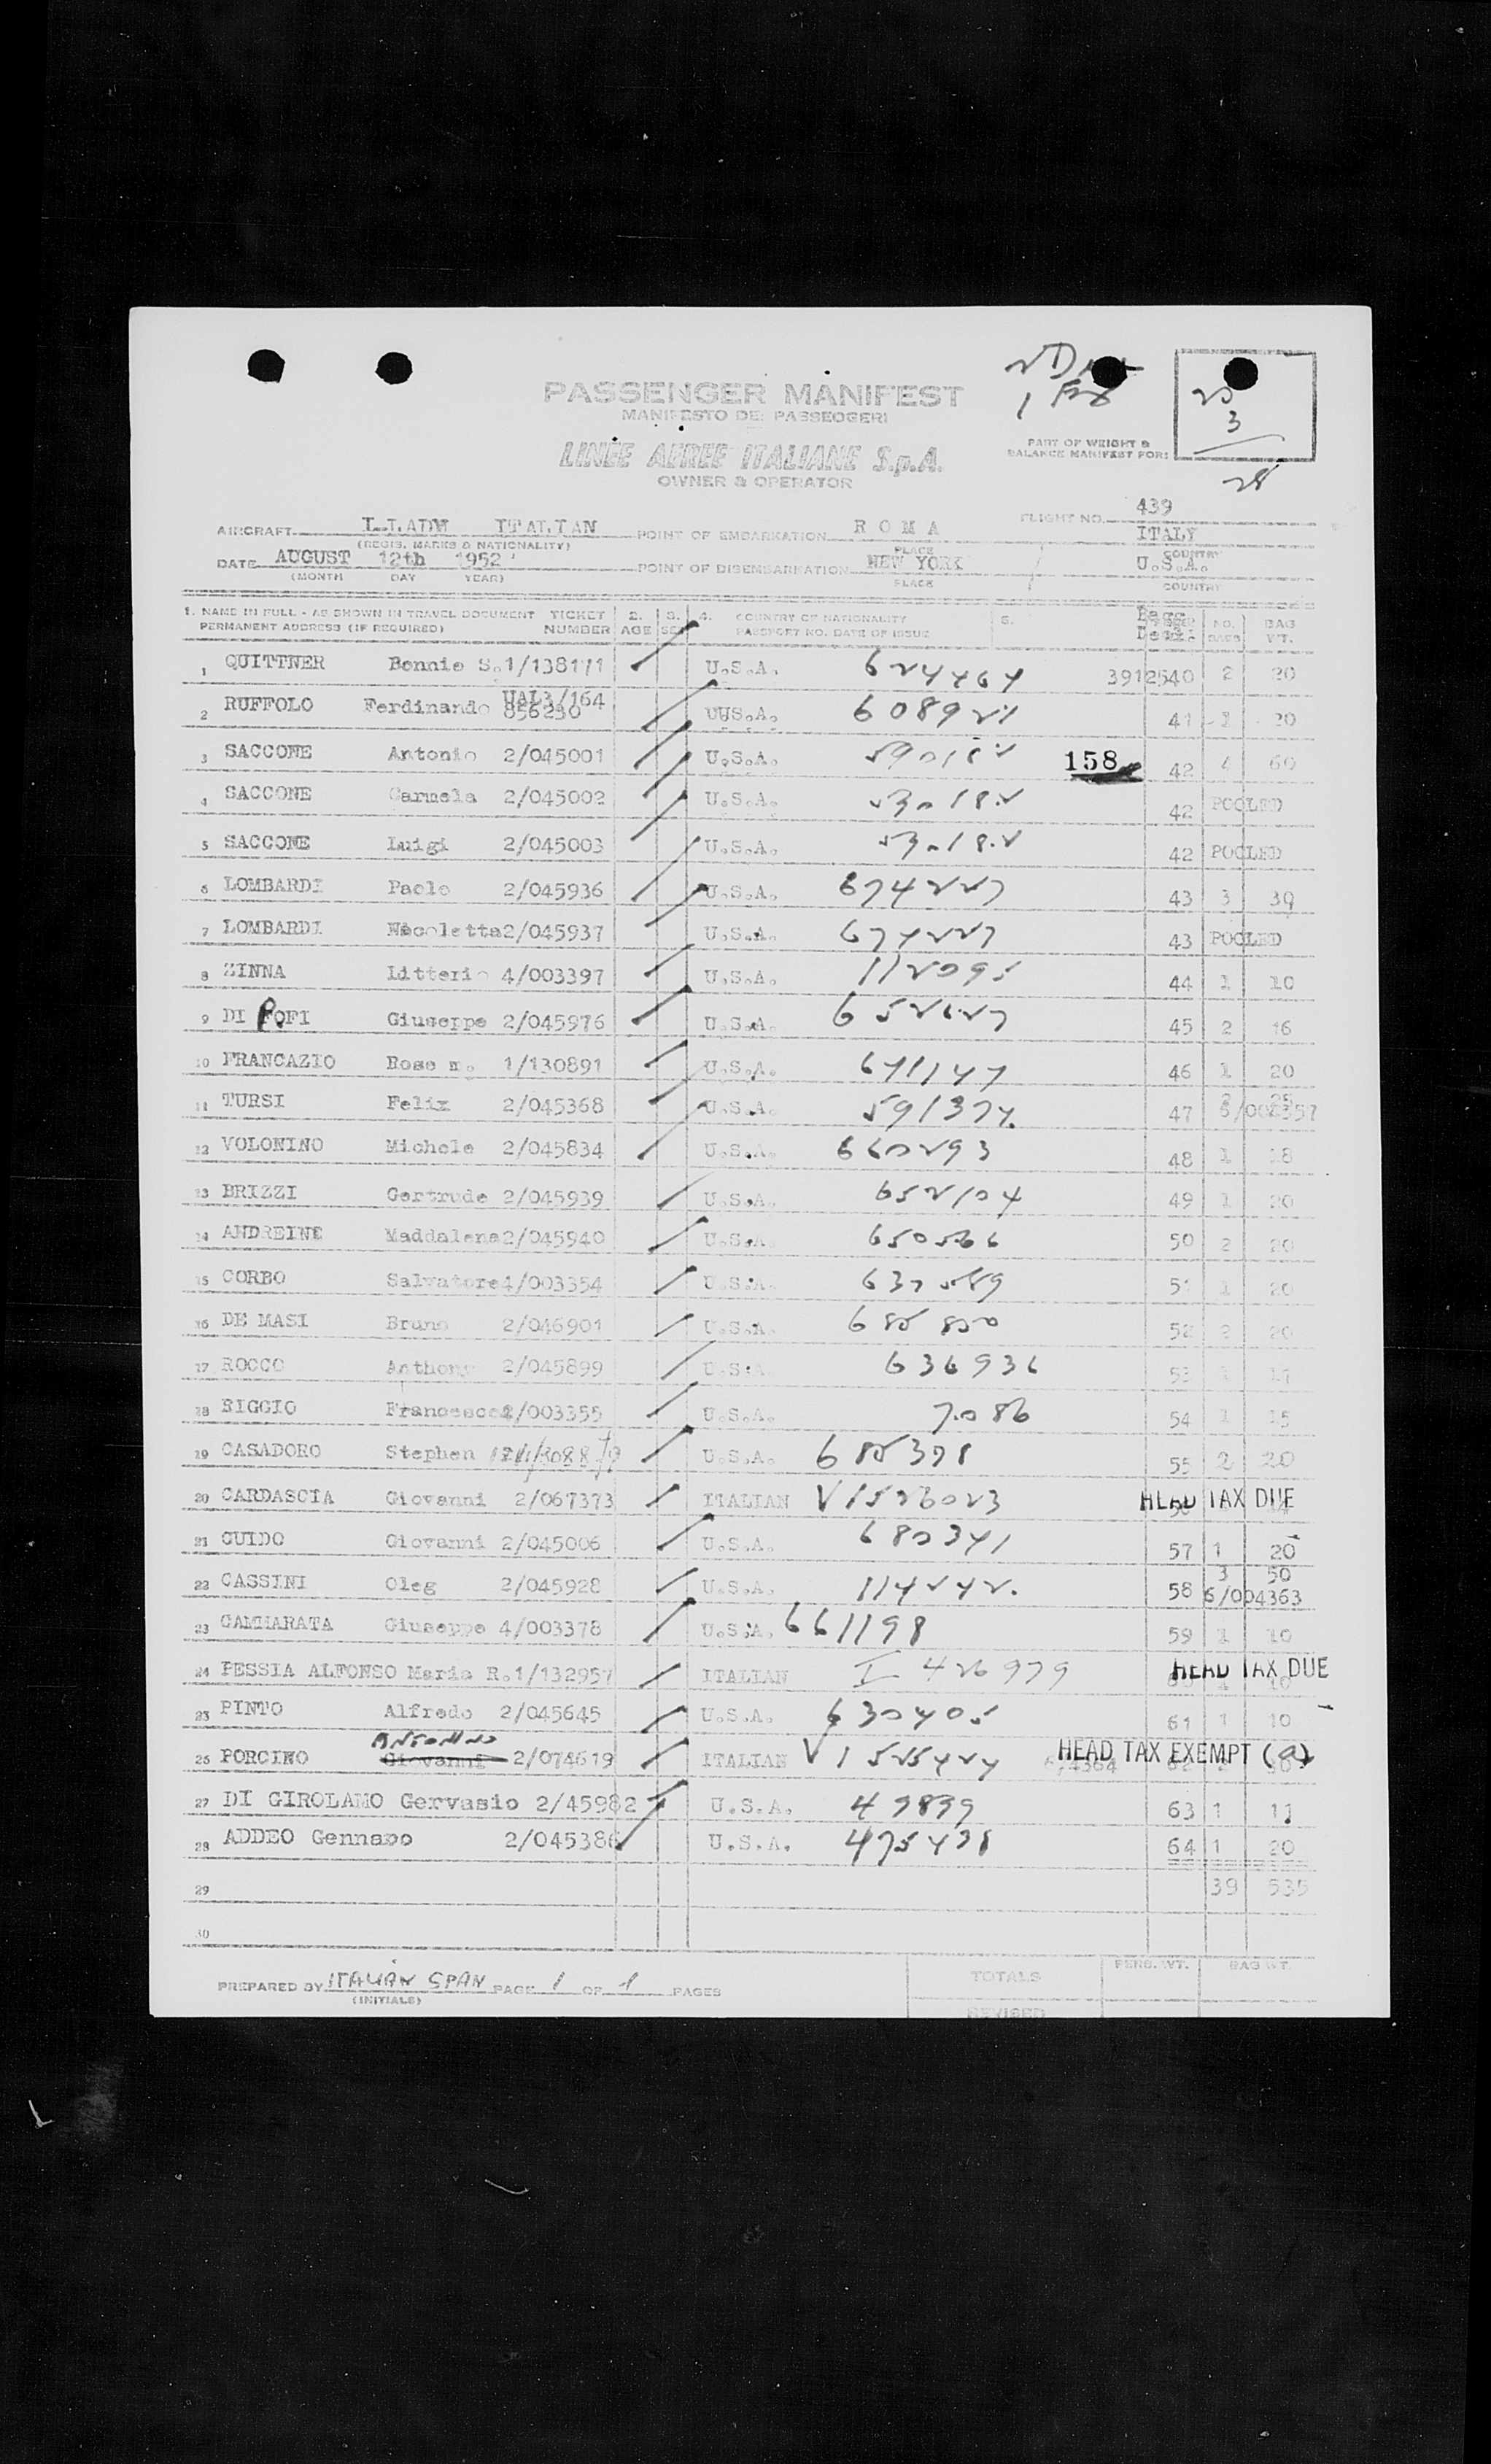 PASSENGER MANIFEST
MANIFESTO DEI PASSEGGERI
LINEE AEREE ITALIANE S.p.A.
OWNER & OPERATOR
PART OF WEIGHT &
BALANCE MANIFEST FOR:
25
3
28
AIRCRAFT I-LADW ITALIAN POINT OF EMBARKATION R O M A FLIGHT NO. 439
ITALY
(REGIS. MARKS & NATIONALITY) PLACE COUNTRY
DATE AUGUST 12th 1952 POINT OF DISEMBARKATION NEW YORK U.S.A.
(MONTH DAY YEAR) PLACE COUNTRY
1. NAME IN FULL - AS SHOWN IN TRAVEL DOCUMENT TICKET 2. 3. 4. COUNTRY OF NATIONALITY 5. NO. BAG
PERMANENT ADDRESS (IF REQUIRED) NUMBER AGE SEX PASSPORT NO. DATE OF ISSUE BAGS WT.
1 QUITTNER Bennie S. 1/138171 U.S.A. 624464 3912540 2 20
2 RUFFOLO Ferdinando UAL3/164 856230 UUS.A. 608921 41 1 20
3 SACCONE Antonio 2/045001 U.S.A. 158 42 4 60
4 SACCONE Carmela 2/045002 U.S.A. 42 POOLED
5 SACCONE Luigi 2/045003 U.S.A. 42 POOLED
6 LOMBARDI Paolo 2/045936 U.S.A. 674227 43 3 39
7 LOMBARDI Nicoletta 2/045937 U.S.A. 674227 43 POOLED
8 ZINNA Litterio 4/003397 U.S.A. 112095 44 1 10
9 DI POFI Giuseppe 2/045976 U.S.A. 45 2 16
10 FRANCAZIO Rose m. 1/130891 U.S.A. 671147 46 1 20
11 TURSI Felix 2/045368 U.S.A. 591374 47 2 25 6/004357
12 VOLONINO Michele 2/045834 U.S.A. 660293 48 1 18
13 BRIZZI Gertrude 2/045939 U.S.A. 652104 49 1 20
14 ANDREINI Maddalena 2/045940 U.S.A. 650566 50 2 20
15 CORBO Salvatore 4/003354 U.S.A. 637589 51 1 20
16 DE MASI Bruno 2/046901 U.S.A. 52 2 20
17 ROCCO Anthony 2/045899 U.S.A. 636936 53 1 17
18 RIGGIO Francesco 4/003355 U.S.A. 7086 54 1 15
19 CASADORO Stephen U.S.A. 685398 55 2 20
20 CARDASCIA Giovanni 2/067373 ITALIAN V1526023 HEAD TAX DUE
21 GUIDO Giovanni 2/045006 U.S.A. 680341 57 1 20
22 CASSINI Oleg 2/045928 U.S.A. 114242 58 3 50 6/004363
23 CAMMARATA Giuseppe 4/003378 U.S.A. 661198 59 1 10
24 PESSIA ALFONSO Maria R. 1/132957 ITALIAN I 426979 HEAD TAX DUE
25 PINTO Alfredo 2/045645 U.S.A. 630405 61 1 10
26 PORCINO Antonino Giovanni 2/074619 ITALIAN V 1525424 HEAD TAX EXEMPT (a)
27 DI GIROLAMO Gervasio 2/45982 U.S.A. 49899 63 1 11
28 ADDEO Gennaro 2/045386 U.S.A. 475438 64 1 20
29 39 535
30
PREPARED BY ITALIAN SPAN PAGE 1 OF 1 PAGES TOTALS PERS. WT. BAG WT.
(INITIALS)
REVISED